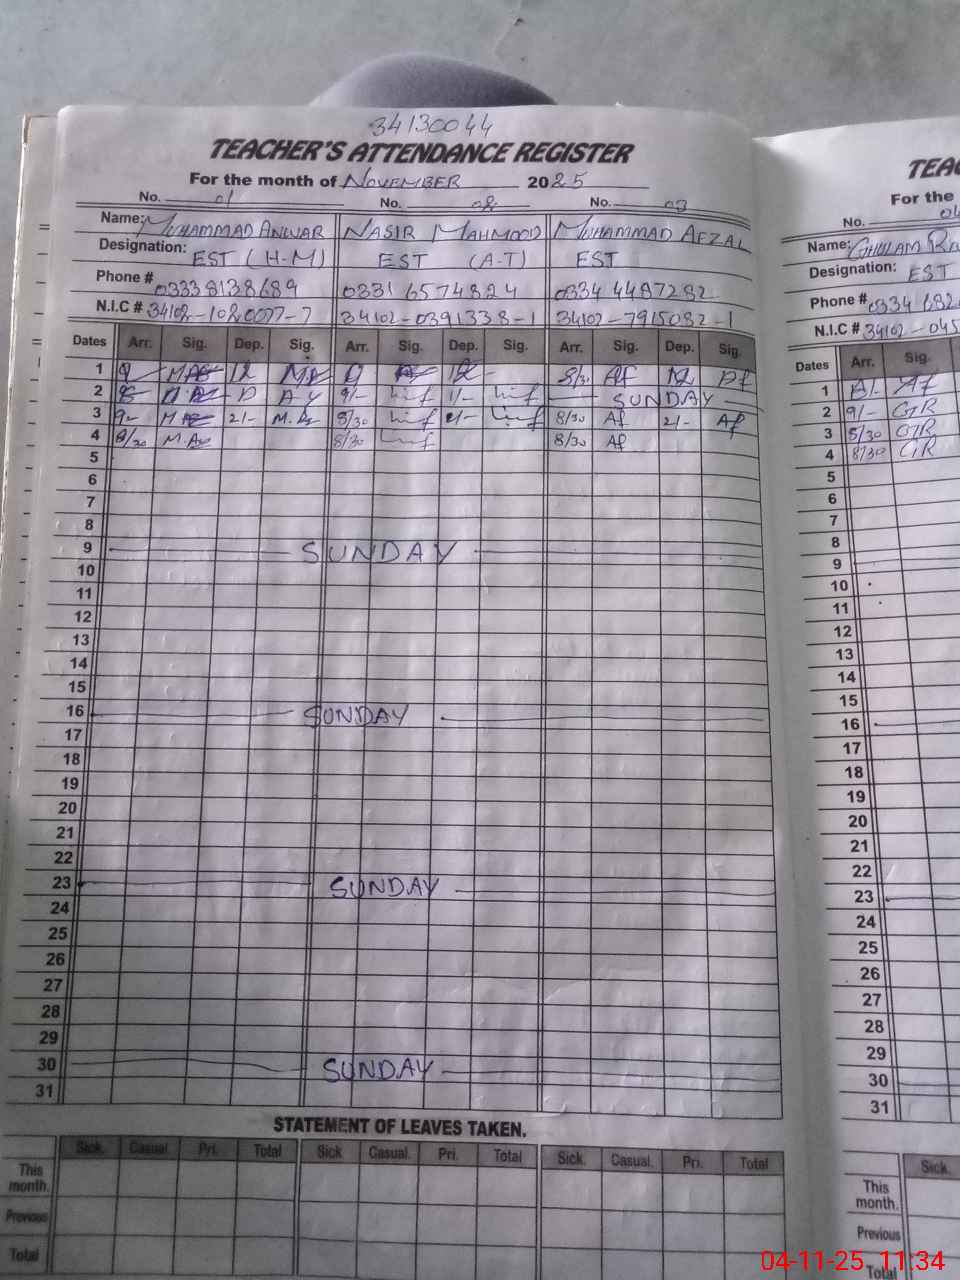 34130044
TEACHER'S ATTENDANCE REGISTER
For the month of NOVEMBER 2025
No. 01 No. 02 No. 03
Name: MUHAMMAD ANWAR NASIR MAHMOOD MUHAMMAD AFZAL
Designation: EST (H-M) EST (A-T) EST
Phone # 03338138689 0331 6574824 0334 4487282
N.I.C # 34102-1080077-7 34102-0391338-1 34102-7915082-1
Dates Arr. Sig. Dep. Sig. Arr. Sig. Dep. Sig. Arr. Sig. Dep. Sig.
1 9 12 9 12 8/30 Af 12
2 9/- SUNDAY
3 2/- 8/30 2/- 8/30 Af 2/- Af
4 8/30 8/30 8/30 Af
5
6
7
8
9 SUNDAY
10
11
12
13
14
15
16 SUNDAY
17
18
19
20
21
22
23 SUNDAY
24
25
26
27
28
29
30 SUNDAY
31
STATEMENT OF LEAVES TAKEN.
Sick. Casual. Pri. Total Sick Casual. Pri. Total Sick. Casual. Pri. Total
This month.
Previous
Total
TEAC
For the
No. 04
Name: GHULAM
Designation: EST
Phone # 0334 682
N.I.C # 34102-045
Dates Arr. Sig.
1
2 9/- GTR
3 8/30 GTR
4 8/30 GTR
5
6
7
8
9
10
11
12
13
14
15
16
17
18
19
20
21
22
23
24
25
26
27
28
29
30
31
Sick.
This month.
Previous
Total
04-11-25 11:34